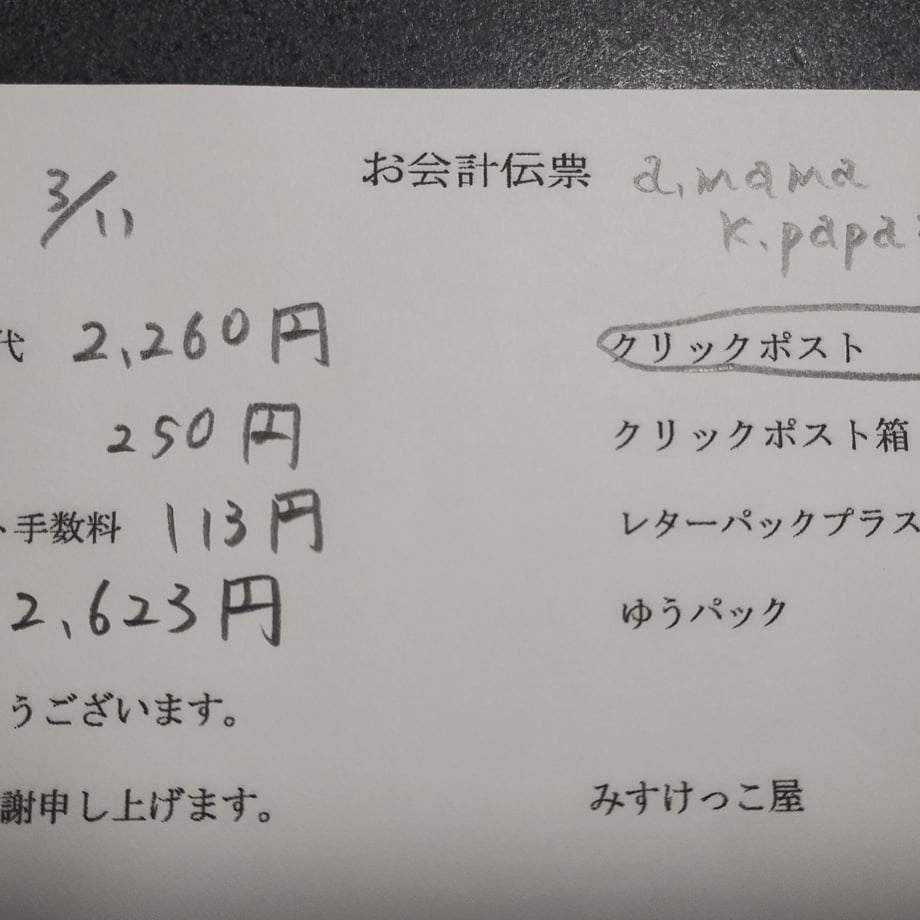 お会計伝票
a.mama
k.papa
3/11
代 2,260円
250円
ト手数料 113円
2,623円
うございます。
謝申し上げます。
クリックポスト
クリックポスト箱
レターパックプラス
ゆうパック
みすけっこ屋